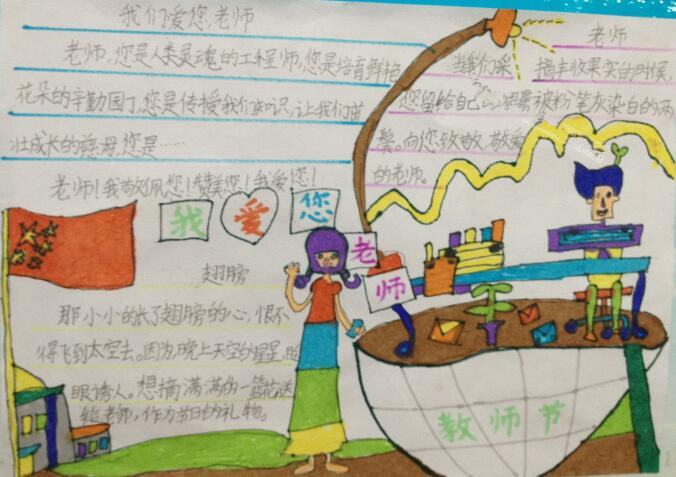 我们爱您,老师
老师,您是人类灵魂的工程师,您是培育鲜艳
花朵的辛勤园丁,您是传授我们知识,让我们茁
壮成长的慈母,您是……
老师!我敬佩您!赞美您!我爱您!
老师
当我们采摘丰收果实的时候,
您留给自己的是被粉笔灰染白的两
鬓。向您致敬,敬爱
的老师。
我爱您
老师
翅膀
那小小的长了翅膀的心,恨不
得飞到太空去。因为,晚上天空的星星,
眼诱人。想摘满满的一篮花送
给老师,作为节日的礼物。
教师节